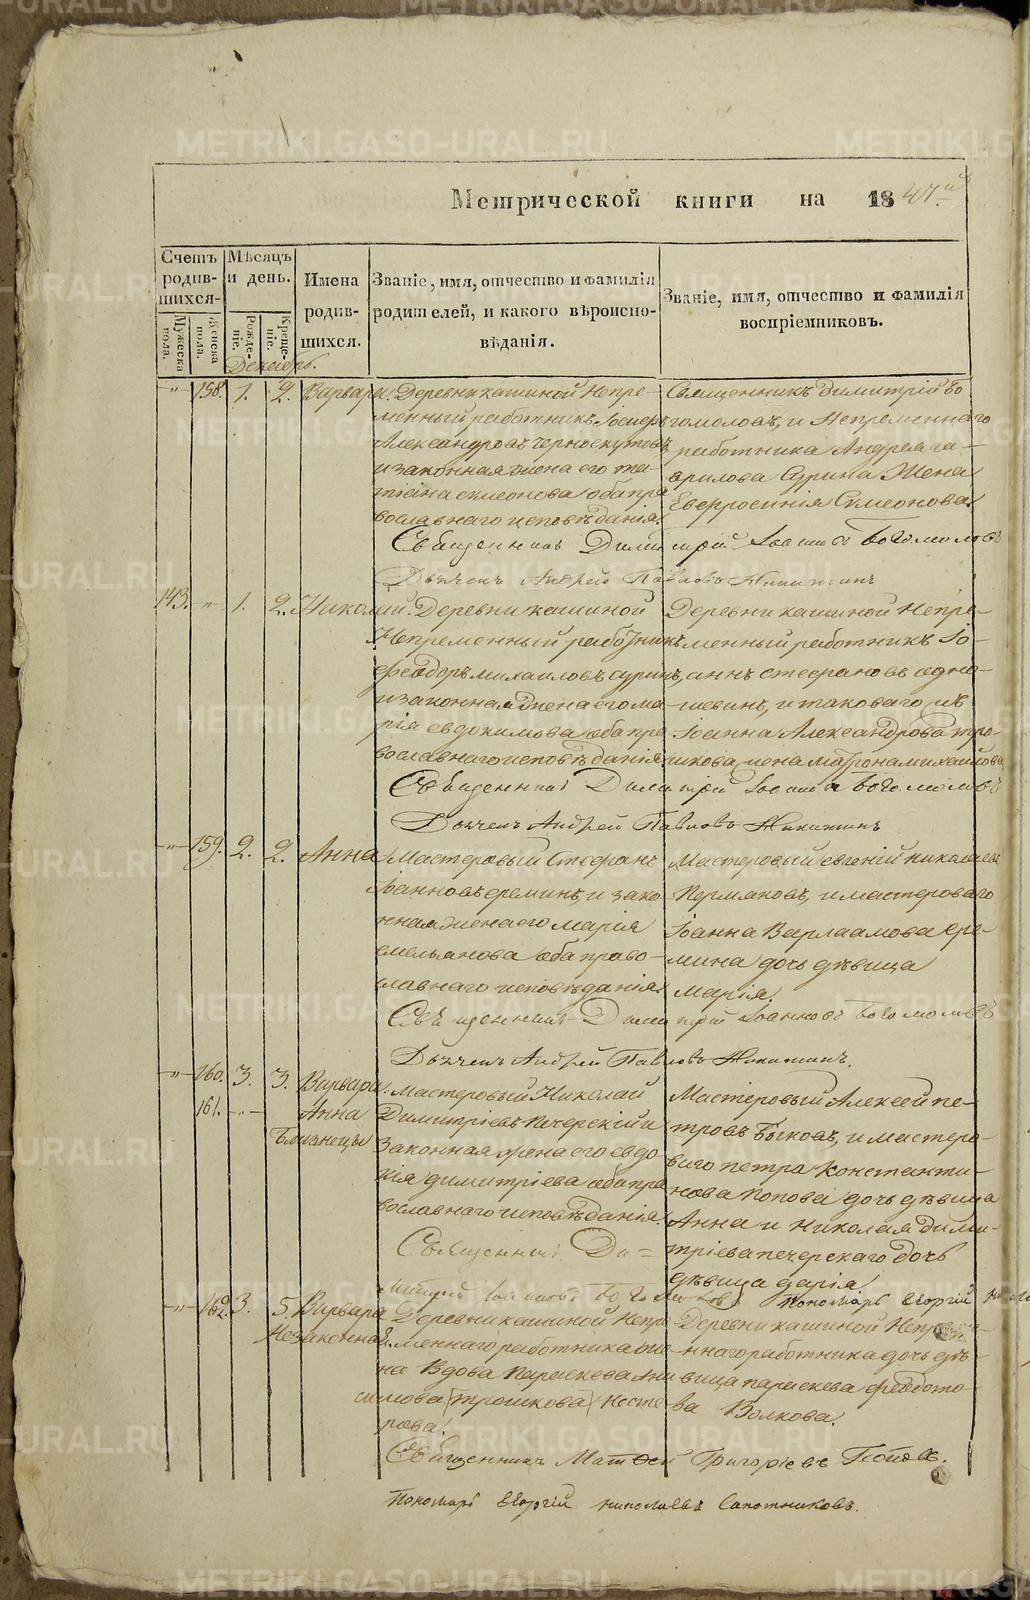 Метрической книги на 1847й
Счетъ родив-шихся.
Мужеска пола.
Женска пола.
Мѣсяцъ и день.
Рожде-нiе.
Креще-нiе.
Имена родив-шихся.
Званiе, имя, отчество и фамилiя родителей, и какого вѣроиспо-вѣданiя.
Званiе, имя, отчество и фамилiя воспрiемниковъ.
Декабрь.
-"- 158. 1. 2. Варвара.
Деревни кашиной Непре-
менный работникъ Iосифъ
Александровъ черноскутовъ
и законная жена его та-
тiана симеонова оба пра
вославнаго исповѣданiя.
Священникъ Димитрiй Бо
гомоловъ, и Непременнаго
работника Андрея га-
врилова Сурина Жена
Евфросинiя Симеонова.
Священникъ Димитрiй Iоанновъ Богомоловъ
Дьячекъ Андрей Павловъ Никитинъ
143. -"- 1. 2. Николай.
Деревни кашиной
Непременный работникъ
феодоръ михаиловъ суринъ,
и законная жена его ма-
рiя евдокимова оба пра
вославнаго исповѣданiя
Деревни кашиной Непре-
менный работникъ Iо-
аннъ стефановъ одно-
шевинъ, и таковаго жъ
Iоанна Александрова тро-
шкова жена матрона михайлова
Священникъ Димитрiй Iоанновъ Богомоловъ
Дьячекъ Андрей Павловъ Никитинъ
-"- 159. 2. 2. Анна
Мастеровый Стефанъ
Iоанновъ ереминъ, и зако-
нная жена его марiя
емельянова оба право-
славнаго исповѣданiя.
Мастеровый евгенiй николаевъ
Пермяковъ, и мастероваго
Iоанна Варлаамова ере-
мина дочь дѣвица
марiя.
Священникъ Димитрiй Iоанновъ Богомоловъ
Дьячекъ Андрей Павловъ Никитинъ.
-"- 160. 3. 3. Варвара.
161. -"- Анна
Близнецы
Мастеровый Николай
Димитрiевъ Печерскiй и
Законная жена его евдо-
кiя димитрiева оба пра
вославнаго исповѣданiя.
Мастеровый Алексей пе-
тровъ Быковъ, и мастеро-
ваго петра константи-
нова Попова дочь дѣвица
Анна и николая дими-
трiева печерскаго дочь
дѣвица дарiя
Священникъ Ди=
митрiй Iоанновъ Богомоловъ Пономарь Георгiй
-"- 162. 3. 5. Варвара
Незаконная.
Деревни кашиной Непре
меннаго работника
на Вдова Параскева
симова /трошкова/ Несте
рова.
Деревни кашиной Непре-
ннаго работника дочь дѣ-
вица параскева феодото-
ва Волкова.
Священникъ Матвей Григорiевъ Поповъ.
Пономарь Георгiй николаевъ Сапожниковъ.
METRIKI.GASO-URAL.RU